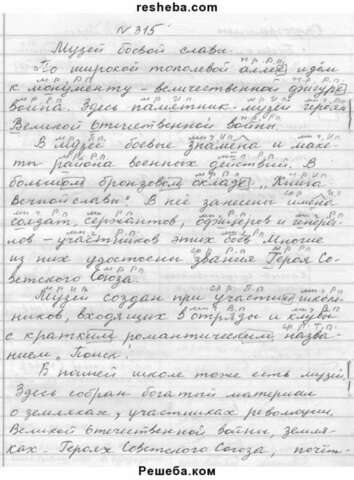 resheba.com
N 315
Музей боевой славы.
По широкой тополевой аллее идём
к монументу - величественной фигуре
воина. Здесь памятник-музей героям
Великой Отечественной войны.
В музее боевые знамёна и маке-
ты района военных действий. В
большом бронзовом окладе „Книга
Вечной славы". В неё занесены имена
солдат, сержантов, офицеров и генера-
лов - участников этих боёв. Многие
из них удостоены звания Героя Со-
ветского Союза.
Музей создан при участии школь-
ников, входящих в отряды и клубы
с кратким романтическим назва-
нием „Поиск".
В нашей школе тоже есть музей.
Здесь собран богатый материал
о земляках, участниках революции,
Великой Отечественной войны, земля-
ках. Героях Советского Союза,
Решеба.ком